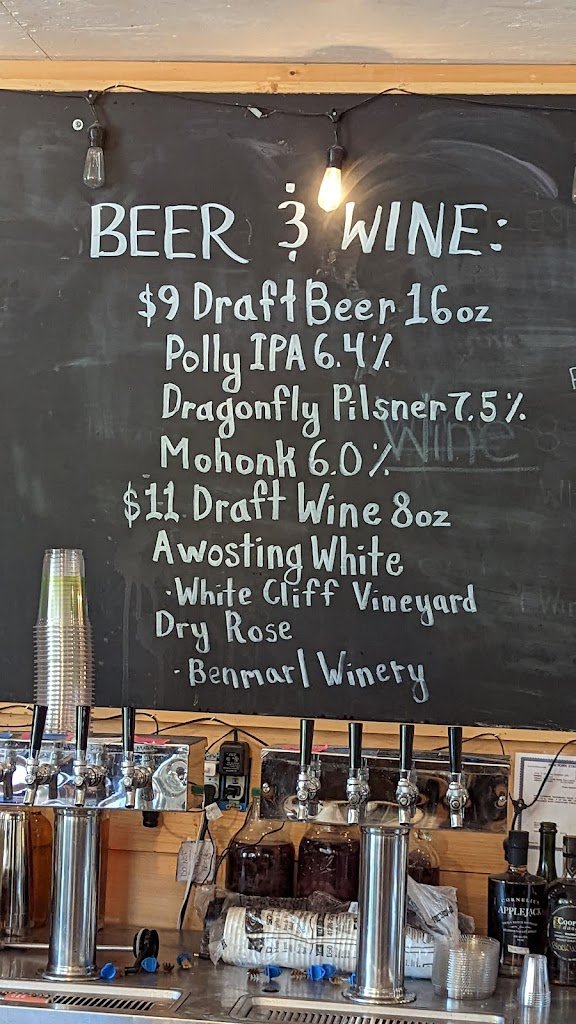 BEER & WINE:
$9 Draft Beer 16oz
Polly IPA 6.4%
Dragonfly Pilsner 7.5%
Wine
Mohonk 6.0%
$11 Draft Wine 8oz
Awosting White
·White Cliff Vineyard
Dry Rose
·Benmarl Winery
CORNELIUS
APPLEJACK